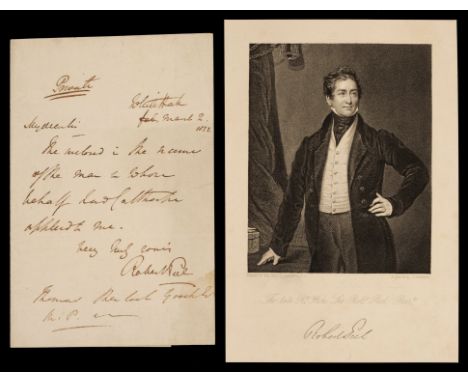 Private
Whitehall
March 2
My dear Sir
The inclosed is the name
of the man in whose
behalf Lord Calthorpe
applied to me.
Very truly yours
Robert Peel
Thomas
M.P.
The late Rt. Hon. Sir Robt. Peel Bart.
Robert Peel